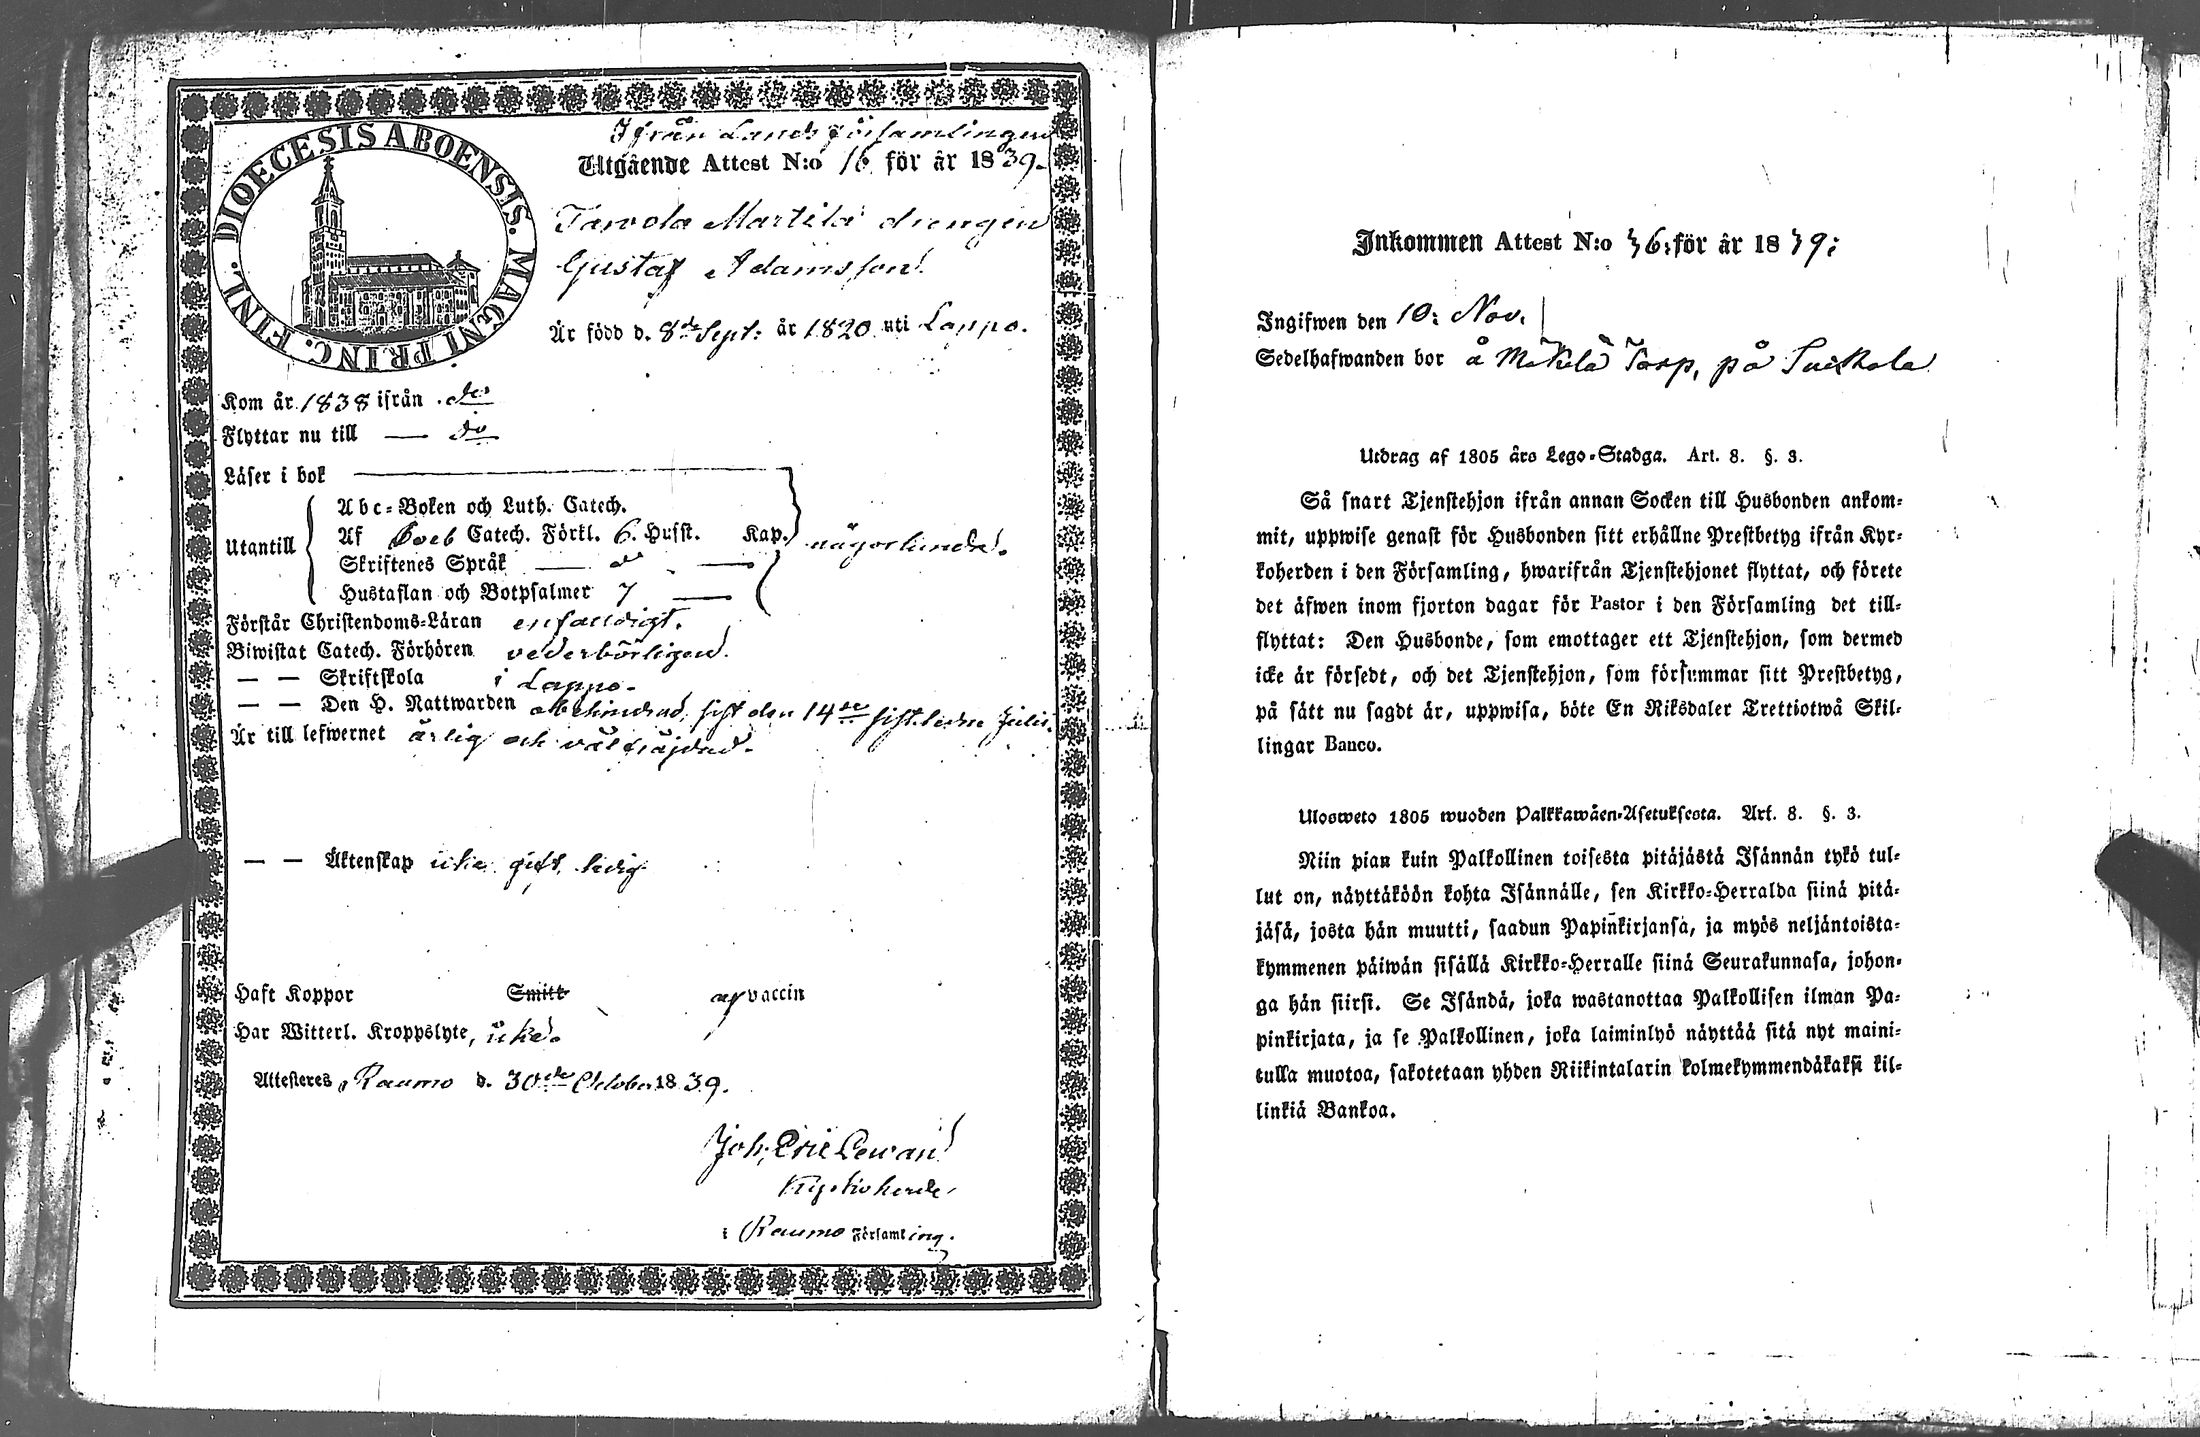 DIOECESIS ABOENSIS. MAGNI PRINC. FINL.
Ifrån Lands församlingen
Utgående Attest N:o 16 för år 1839.
Tarvola Martila drengen
Gustaf Adamsson
Är född d. 8de Sept: år 1820 uti Lappo.
Kom år 1838 ifrån do
Flyttar nu till — do
Läser i bok
Utantill
Abc-Boken och Luth. Catech.
Af Sveb Catech. Förkl. 6. Husst. Kap.
någorlunda.
Skriftenes Språk — —
Hustaflan och Botpsalmer 7 —
Förstår Christendoms-Läran enfaldigt.
Biwistat Catech. Förhören vederbörligen.
— — Skriftskola i Lappo.
— — Den H. Nattwarden obehindrad, sist den 14de sistledne Julii.
Är till lefwernet ärlig och väl fräjdad.
— — Äktenskap icke gift, ledig
Haft Koppor Smitt af vaccin
Har Witterl. Kroppslyte, icke.
Attesteres, Raumo d. 30de October 1839.
Joh. Eric Lewan
Kyrkoherde
i Raumo Församling.
Inkommen Attest N:o 36: för år 1839:
Ingifwen den 10: Nov.
Sedelhafwanden bor å Mäkelä Torp, på Suikala
Utdrag af 1805 års Lego-Stadga. Art. 8. §. 3.
Så snart Tjenstehjon ifrån annan Socken till Husbonden ankom-
mit, uppwise genast för Husbonden sitt erhållne Prestbetyg ifrån Kyr-
koherden i den Församling, hwarifrån Tjenstehjonet flyttat, och förete
det äfwen inom fjorton dagar för Pastor i den Församling det till-
flyttat: Den Husbonde, som emottager ett Tjenstehjon, som dermed
icke är försedt, och det Tjenstehjon, som försummar sitt Prestbetyg,
på sätt nu sagdt är, uppwisa, böte En Riksdaler Trettiotwå Skil-
lingar Banco.
Ulosweto 1805 wuoden Palkkawäen-Asetuksesta. Art. 8. §. 3.
Niin pian kuin Palkollinen toisesta pitäjästä Isännän tykö tul-
lut on, näyttäköön kohta Isännälle, sen Kirkko-Herralda siinä pitä-
jäsä, josta hän muutti, saadun Papinkirjansa, ja myös neljäntoista-
kymmenen päiwän sisällä Kirkko-Herralle siinä Seurakunnasa, johon-
ga hän siirsi. Se Isändä, joka wastanottaa Palkollisen ilman Pa-
pinkirjata, ja se Palkollinen, joka laiminlyö näyttää sitä nyt maini-
tulla muotoa, sakotetaan yhden Riikintalarin kolmekymmendäkaksi kil-
linkiä Bankoa.